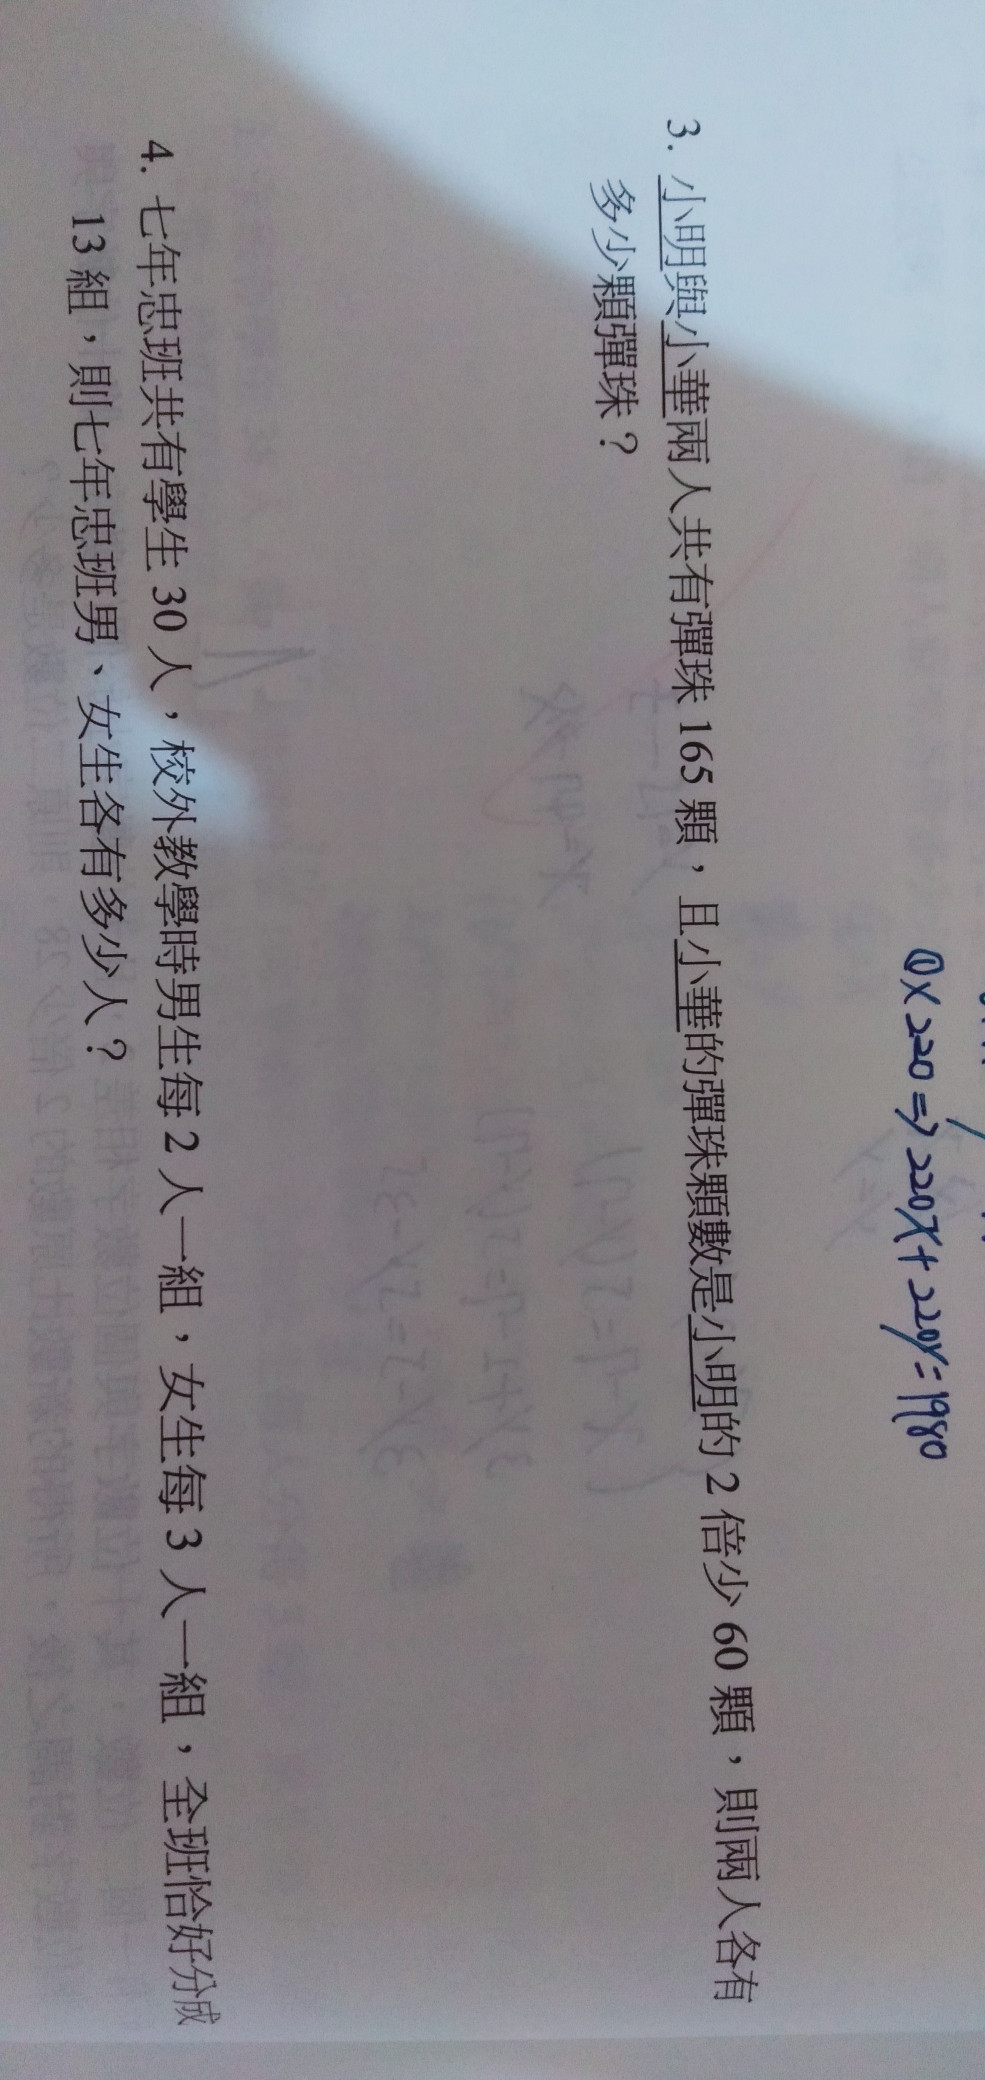 ①×220⇒220x+220y=1980
3. 小明與小華兩人共有彈珠 165 顆，且小華的彈珠顆數是小明的 2 倍少 60 顆，則兩人各有
多少顆彈珠？
4. 七年忠班共有學生 30 人，校外教學時男生每 2 人一組，女生每 3 人一組，全班恰好分成
13 組，則七年忠班男、女生各有多少人？